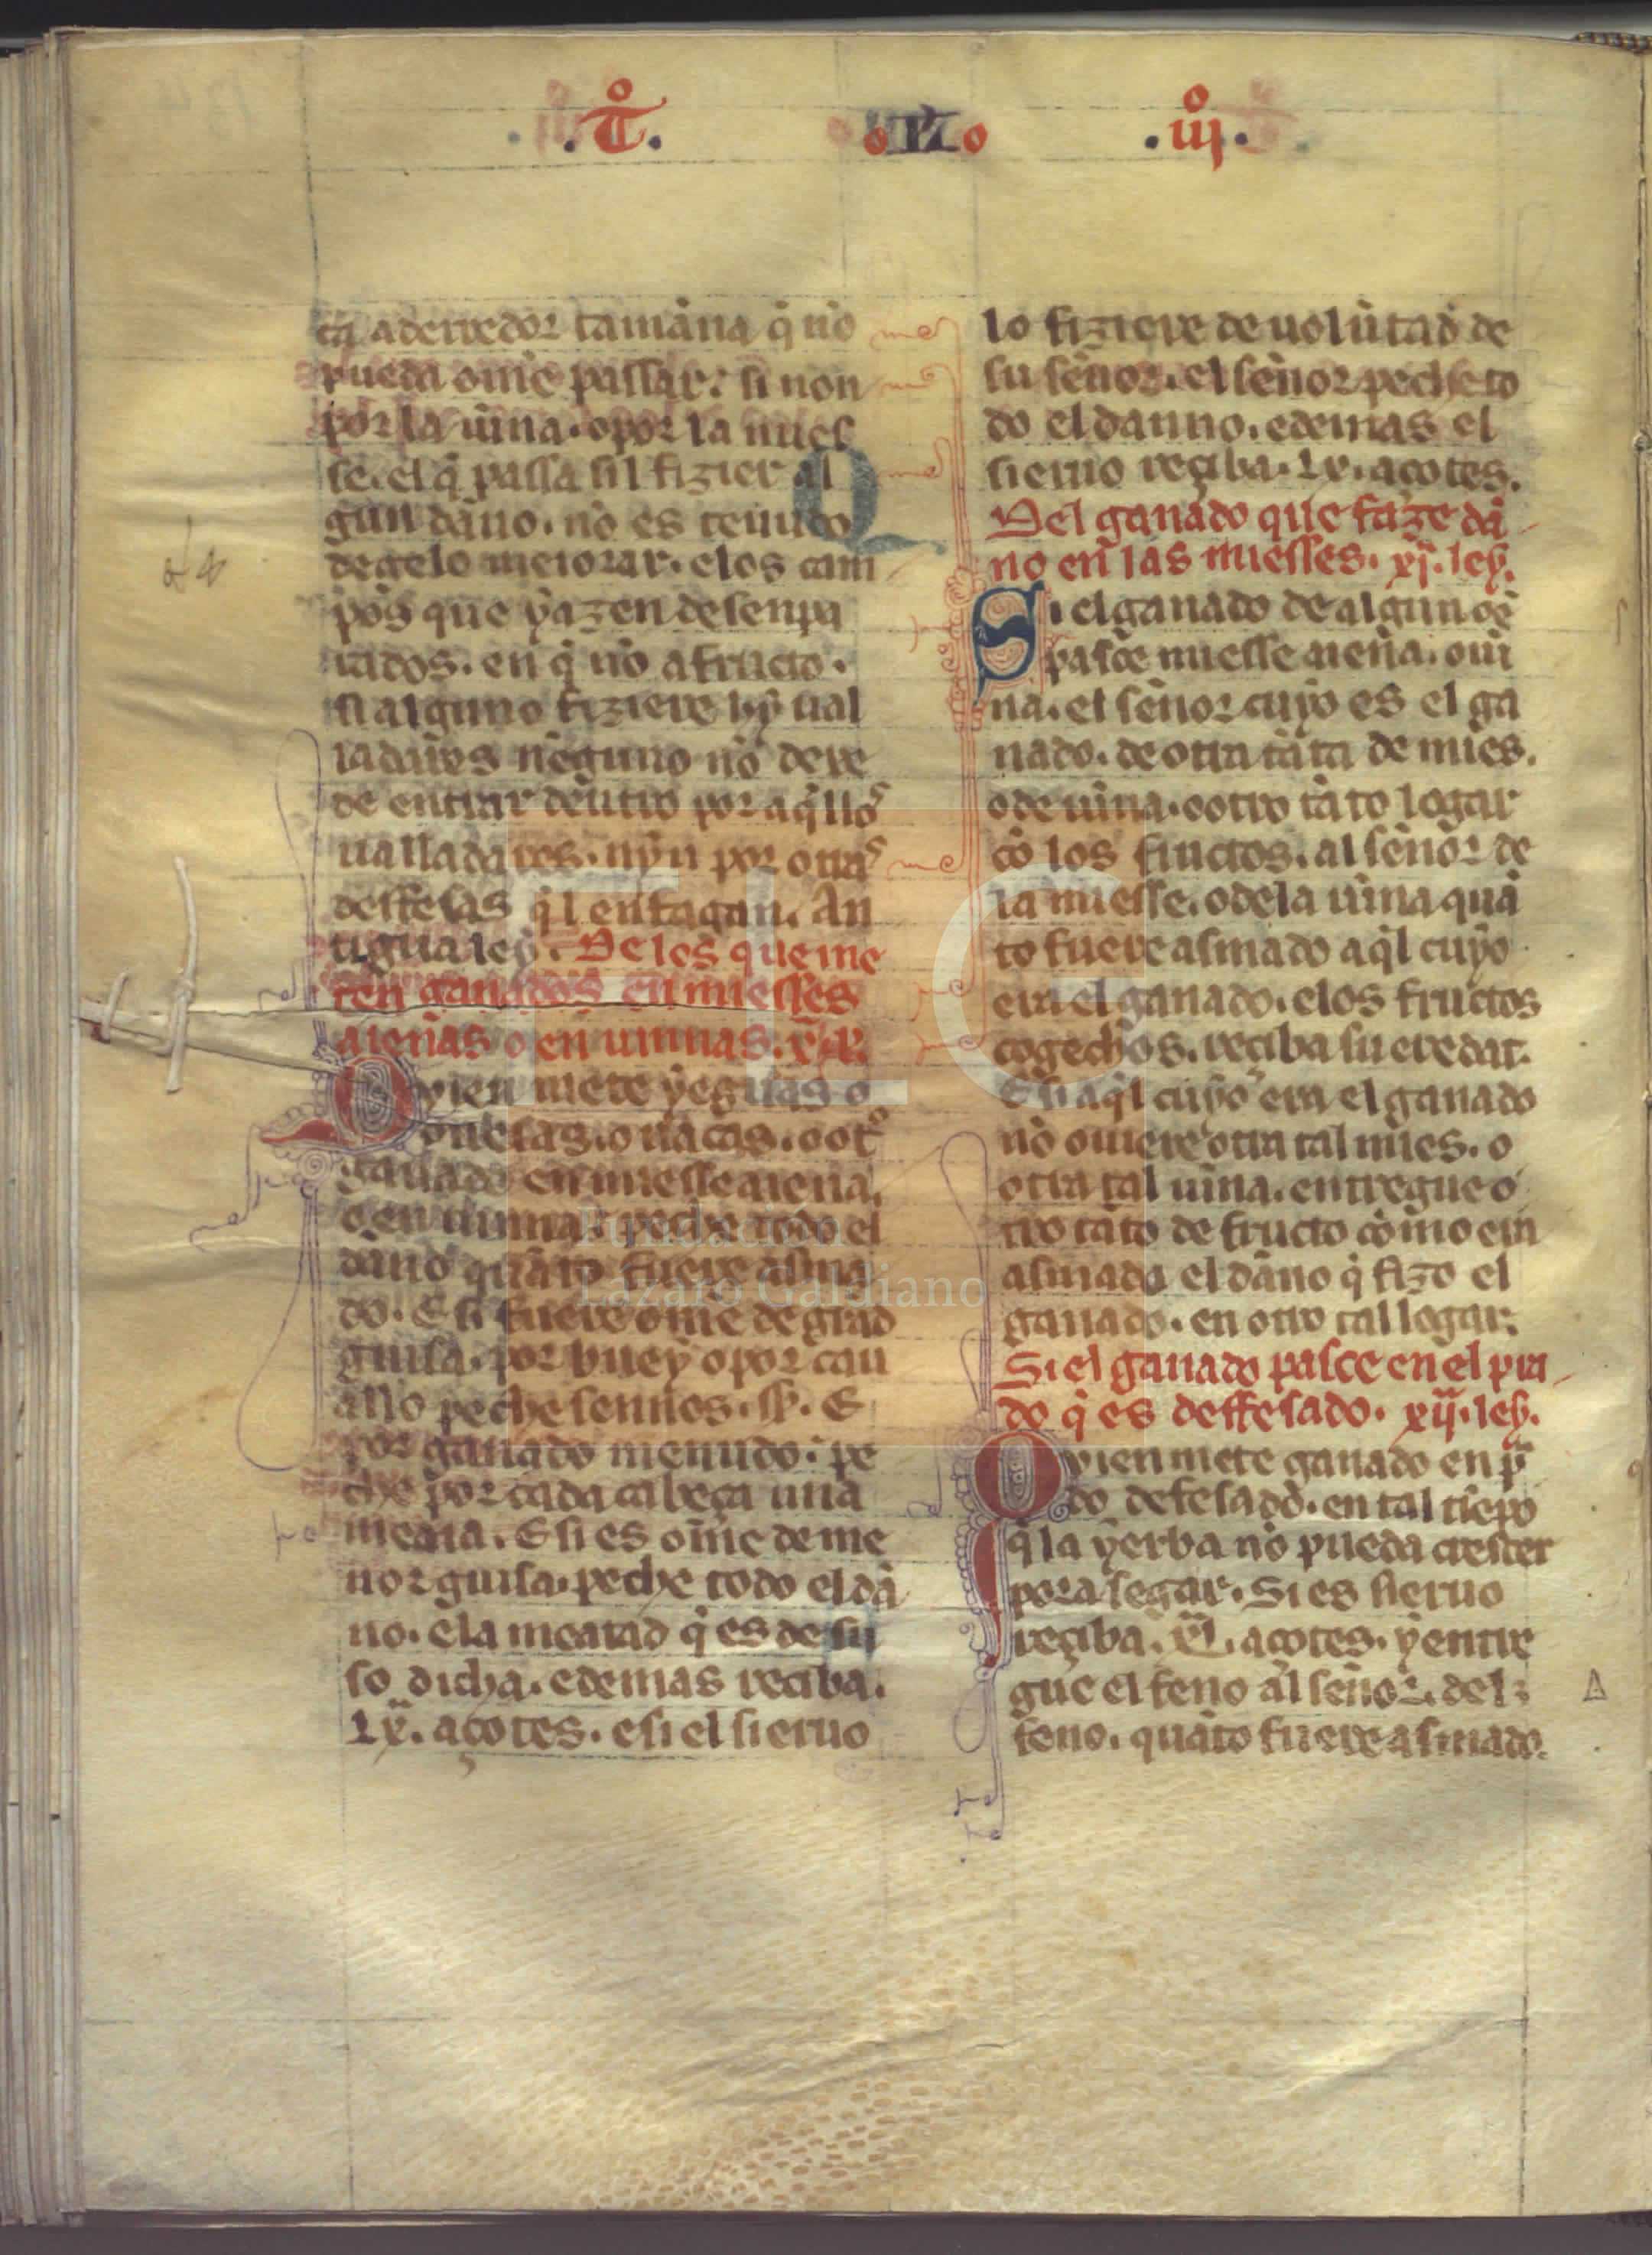 .T̊. o IX o .iij̊.
ca aderredor tamãna q̃ nõ
pueda omẽ passar. si non
por la uina. o por la mies
se. el q̃ passa sil fizier al
gun dãno. nõ es tenudo
degelo meiorar. e los cam
pos que yazen desenpa
rados. en q̃ nõ a fructo.
si alguno fiziere hy ual
ladares neguno nõ deve
de entrar dentro por aq̃llos
ualladares. nyn por otras
deffesas q̃l en fagan. An
tigua ley. De los que me
ten ganados en miesses
aienas o en uinnas. x. l.
Quien mete yeguas o
ouesas. o uacas. o ot^o
ganado en miesse aiena.
o en uinnas peche todo el
dãno quãto fuere asma
do. E si fuere omẽ de grãd
guisa. por buey o por cau
allo peche sennos. ss. E
por ganado menudo. pe
che por cada cabeça una
meaia. E si es omẽ de me
nor guisa. peche todo el dã
no. e la meatad q̃ es de su
so dicha. e demas reciba.
lx. açotes. e si el sieruo
lo fiziere de uolũtad de
su señor. el señor peche to
do el danno. e demas el
sieruo reçiba. lx. açotes.
Del ganado que faze dã
no en las miesses. xj. ley.
Si el ganado de algun oẽ
pasce miesse aiena. o ui
na. el señor cuyo es el ga
nado. de otra tãta de mies.
o de uina. o otro tãto logar
cõ los fructos. al señor de
la miesse. o de la uina quã
to fuere asmado aq̃l cuyo
era el ganado. e los fructos
cogechos. reçiba su eredat.
E si aq̃l cuyo era el ganado
nõ ouiere otra tal mies. o
otra tal uina. entregue o
tro tãto de fructo cõmo era
asmado el dãno q̃ fizo el
ganado. en otro tal logar.
Si el ganado pasce en el pra
do q̃ es deffesado. xij. ley.
Quien mete ganado en p^a
do defesado. en tal tiẽpo
q̃ la yerba nõ pueda crescer
pora segar. Si es sieruo
reçiba. xl. açotes. y entre
gue el feno al señor. del
feno. quãto fuere asmado.
FLG
Fundación
Lázaro Galdiano